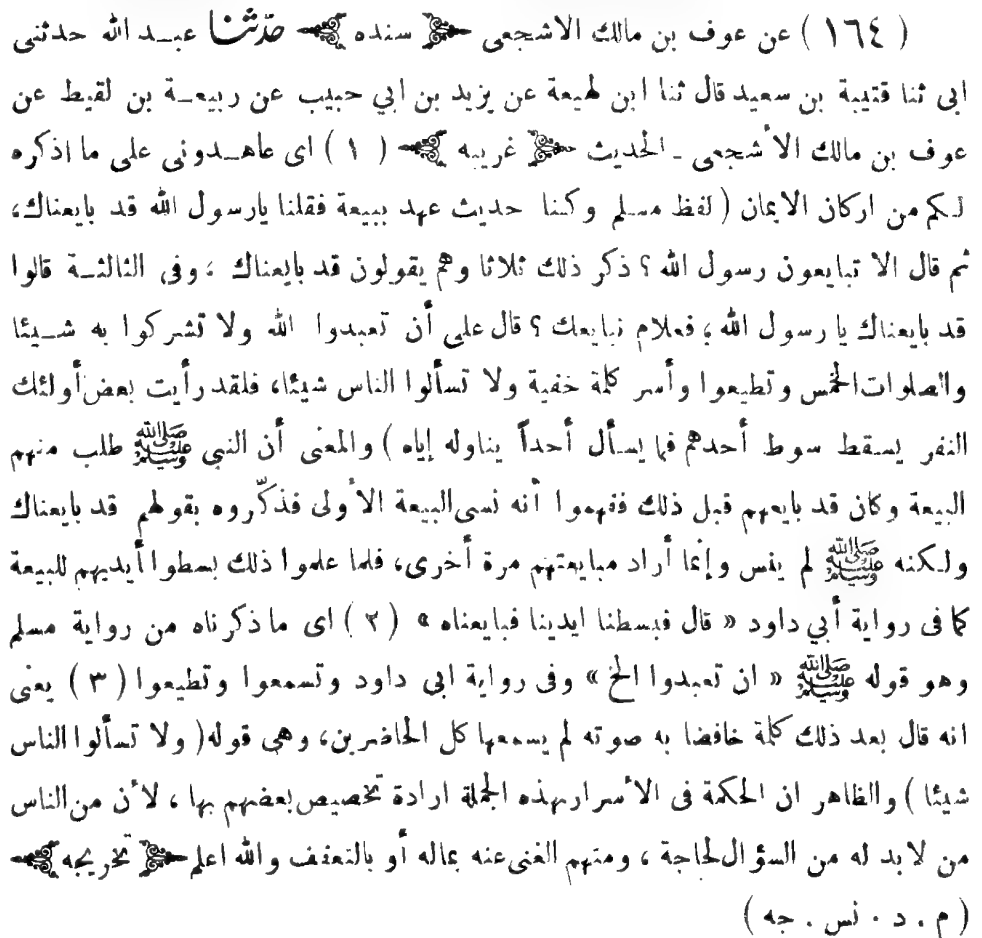 ( ١٦٤ ) عن عوف بن مالك الاشجعى ﴿ سنده ﴾ حدثنا عبد الله حدثنى
ابى ثنا قتيبة بن سعيد قال ثنا ابن لهيعة عن يزيد بن ابي حبيب عن ربيعة بن لقيط عن
عوف بن مالك الأشجعى ـ الحديث ﴿ غريبه ﴾ ( ١ ) اى عاهدونى على ما اذكره
لكم من اركان الايمان ( لفظ مسلم وكنا حديث عهد ببيعة فقلنا يارسول الله قد بايعناك،
ثم قال الا تبايعون رسول الله ؟ ذكر ذلك ثلاثا وهم يقولون قد بايعناك ، وفى الثالثة قالوا
قد بايعناك يا رسول الله ؛ فعلام نبايعك ؟ قال على أن تعبدوا الله ولا تشركوا به شيئا
والصلوات الخمس وتطيعوا وأسر كلمة خفية ولا تسألوا الناس شيئا، فلقد رأيت بعض أولئك
النفر يسقط سوط أحدهم فما يسأل أحداً يناوله إياه ) والمعنى أن النبى ﷺ طلب منهم
البيعة وكان قد بايعهم قبل ذلك ففهموا أنه نسى البيعة الأولى فذكّروه بقولهم قد بايعناك
ولكنه ﷺ لم ينس وإنما أراد مبايعتهم مرة أخرى، فلما علموا ذلك بسطوا أيديهم للبيعة
كما فى رواية أبي داود « قال فبسطنا ايدينا فبايعناه » ( ٢ ) اى ما ذكرناه من رواية مسلم
وهو قوله ﷺ « ان تعبدوا الخ » وفى رواية ابى داود وتسمعوا وتطيعوا ( ٣ ) يعنى
انه قال بعد ذلك كلمة خافضا به صوته لم يسمعها كل الحاضرين، وهى قوله ( ولا تسألوا الناس
شيئا ) والظاهر ان الحكمة فى الأسرار بهذه الجملة ارادة تخصيص بعضهم بها ، لأن من الناس
من لابد له من السؤال لحاجة ، ومنهم الغنى عنه بماله أو بالتعفف والله اعلم ﴿ تخريجه ﴾
( م . د . نس . جه )